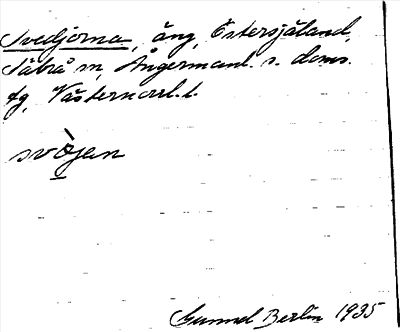 Svedjorna, äng, Östersjåland,
Säbrå sn, Ångermanl. s. doms.
fg, Västernorrl. l.
svòjen
Gunnel Berlin 1935